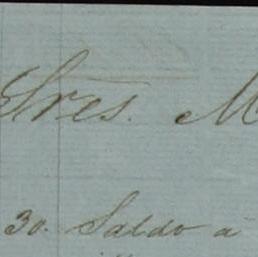 Sres. M
30. Saldo a